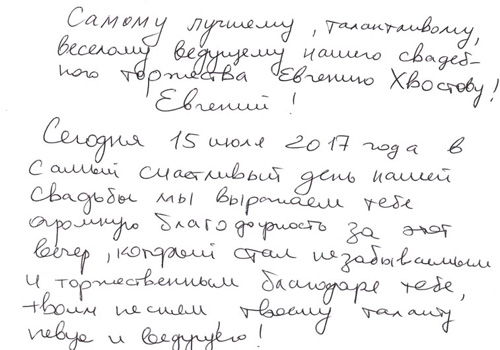 Самому лучшему, талантливому,
веселому ведущему нашего свадеб-
ного торжества Евгению Хвостову!
Евгений!
Сегодня 15 июля 2017 года в
самый счастливый день нашей
свадьбы мы выражаем тебе
огромную благодарность за этот
вечер, который стал незабываемым
и торжественным благодаря тебе,
твоим песням твоему таланту
певца и ведущего!